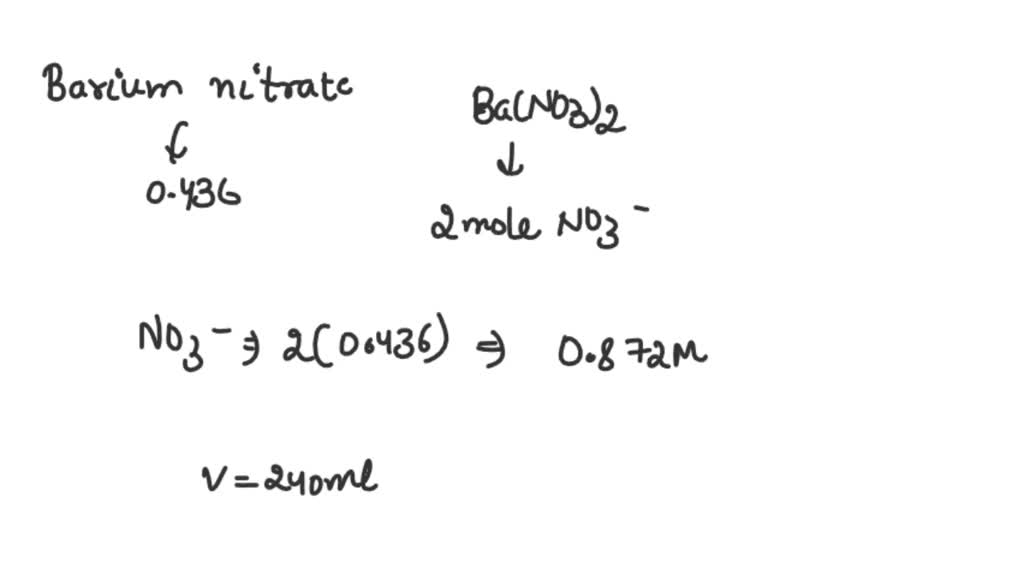 Barium nitrate
↓
0.436
Ba(NO3)2
↓
2 mole NO3⁻
NO3⁻ ⇒ 2(0.436) ⇒ 0.872M
V = 240ml